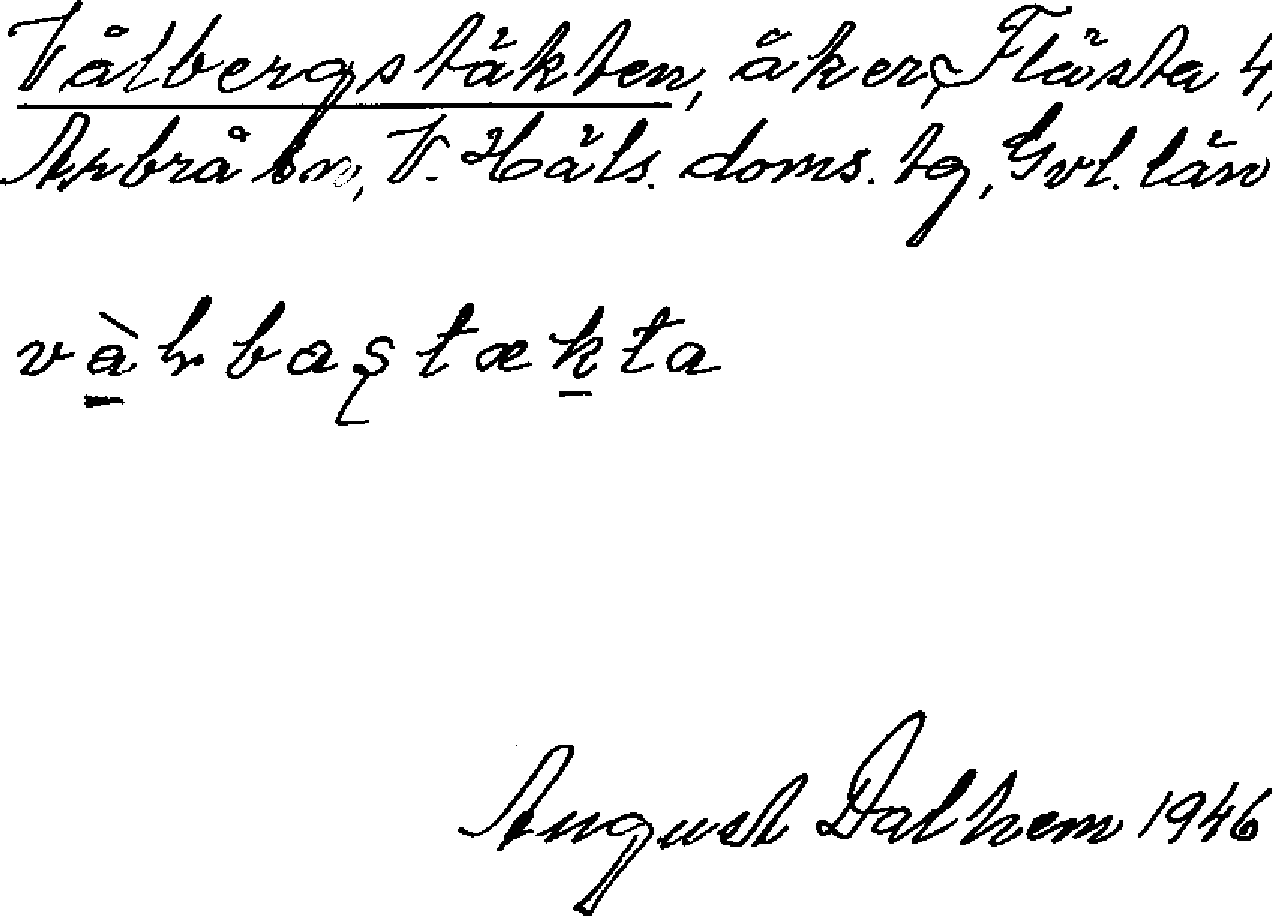 Vålbergstäkten, åker, Flästa 4,
Arbrå sn, V. Häls. doms. tg, Gvl. län
August Dalhem 1946